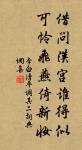 借问汉宫谁得似
可怜飞燕倚新妆
李白清平调其二词典
网集